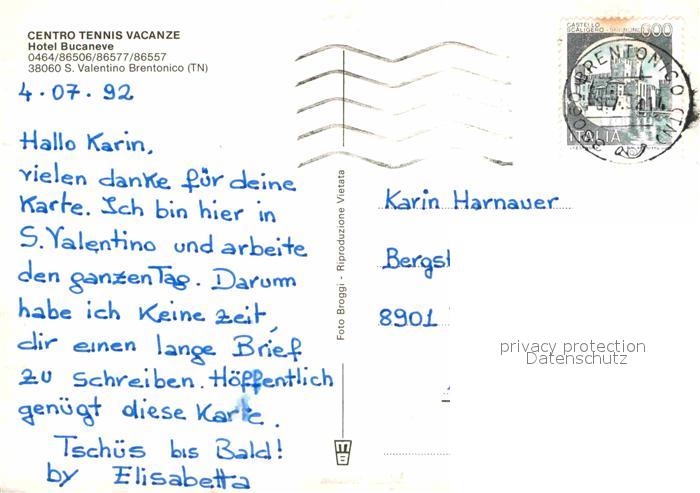 CENTRO TENNIS VACANZE
Hotel Bucaneve
0464/86506/86577/86557
38060 S. Valentino Brentonico (TN)
4.07.92
Hallo Karin,
vielen danke für deine
Karte. Ich bin hier in
S. Valentino und arbeite
den ganzen Tag. Darum
habe ich Keine zeit,
dir einen lange Brief
zu schreiben. Höffentlich
genügt diese Karte.
Tschüs bis Bald!
by Elisabetta
Foto Broggi - Riproduzione Vietata
CASTELLO
SCALIGERO - SIRMIONE
600
ITALIA
BRENTONICO (TN)
Karin Harnauer
Bergst
8901
privacy protection
Datenschutz